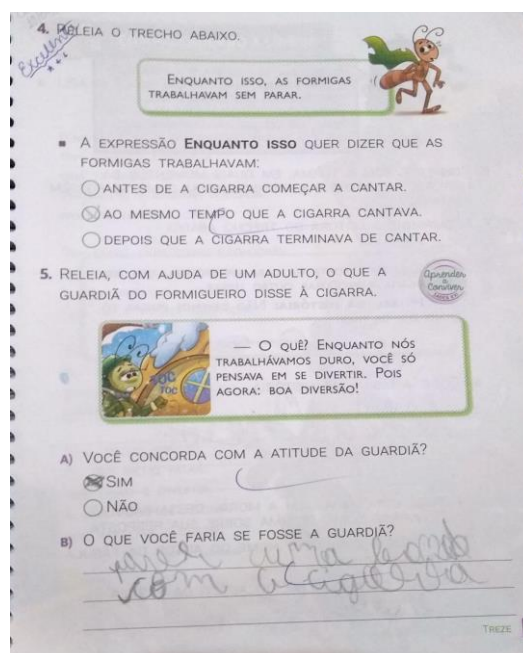 Excelente
4. RELEIA O TRECHO ABAIXO.
ENQUANTO ISSO, AS FORMIGAS
TRABALHAVAM SEM PARAR.
A EXPRESSÃO ENQUANTO ISSO QUER DIZER QUE AS
FORMIGAS TRABALHAVAM:
ANTES DE A CIGARRA COMEÇAR A CANTAR.
AO MESMO TEMPO QUE A CIGARRA CANTAVA.
DEPOIS QUE A CIGARRA TERMINAVA DE CANTAR.
5. RELEIA, COM AJUDA DE UM ADULTO, O QUE A
GUARDIÃ DO FORMIGUEIRO DISSE À CIGARRA.
Aprender
e
Conviver
TOC
TOC
— O QUÊ? ENQUANTO NÓS
TRABALHÁVAMOS DURO, VOCÊ SÓ
PENSAVA EM SE DIVERTIR. POIS
AGORA: BOA DIVERSÃO!
A) VOCÊ CONCORDA COM A ATITUDE DA GUARDIÃ?
SIM
NÃO
B) O QUE VOCÊ FARIA SE FOSSE A GUARDIÃ?
uma
com a
TREZE